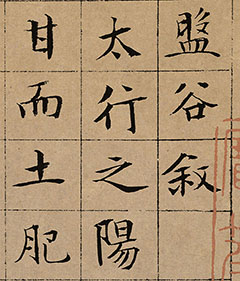 盤谷叙
太行之陽
甘而土肥